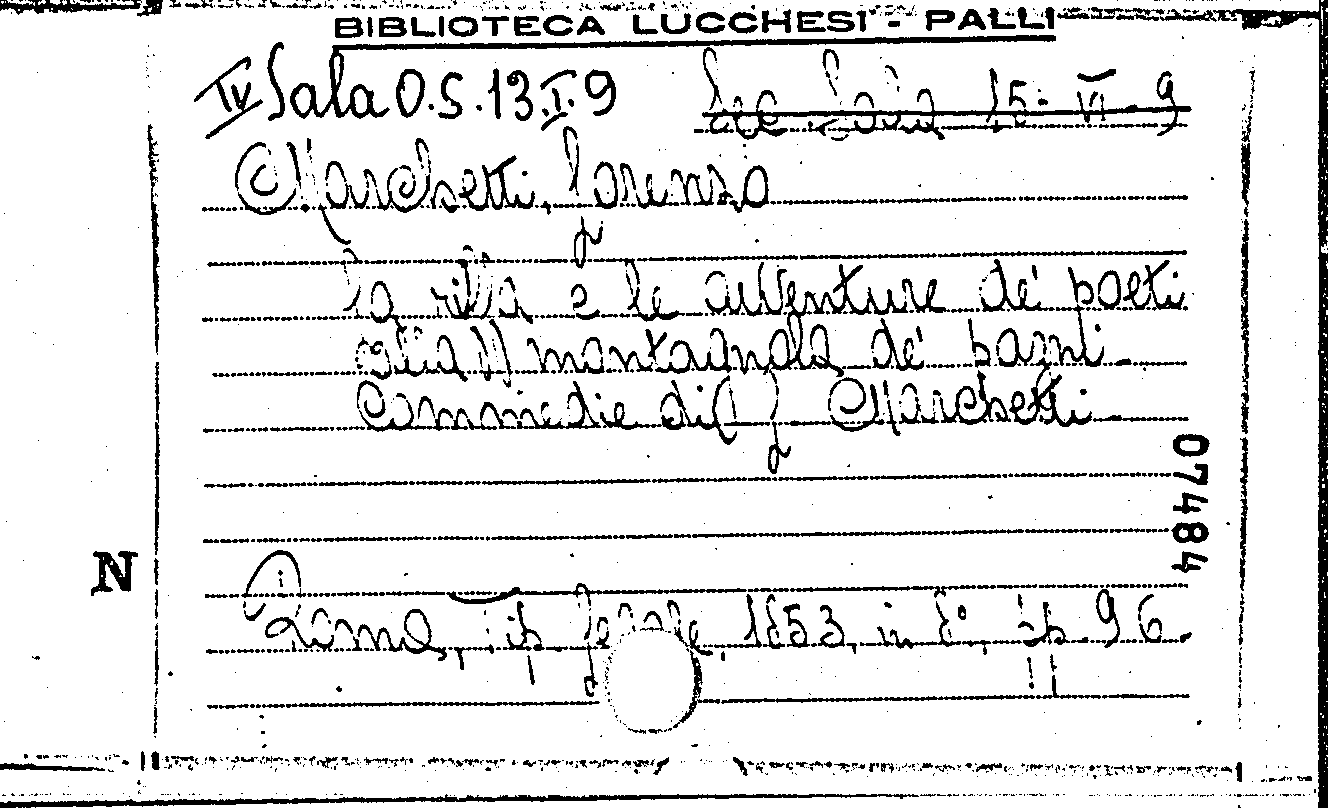 BIBLIOTECA LUCCHESI - PALLI
IV Sala O.S.13.I.9
Sec Sala 15-VI-9
Marchetti, Lorenzo
La villa e le avventure de' poeti
alla montagnola de' bagni.
Commedie di L Marchetti.
07484
N
Roma, tip. Legale, 1853, in 8°, pp. 96.